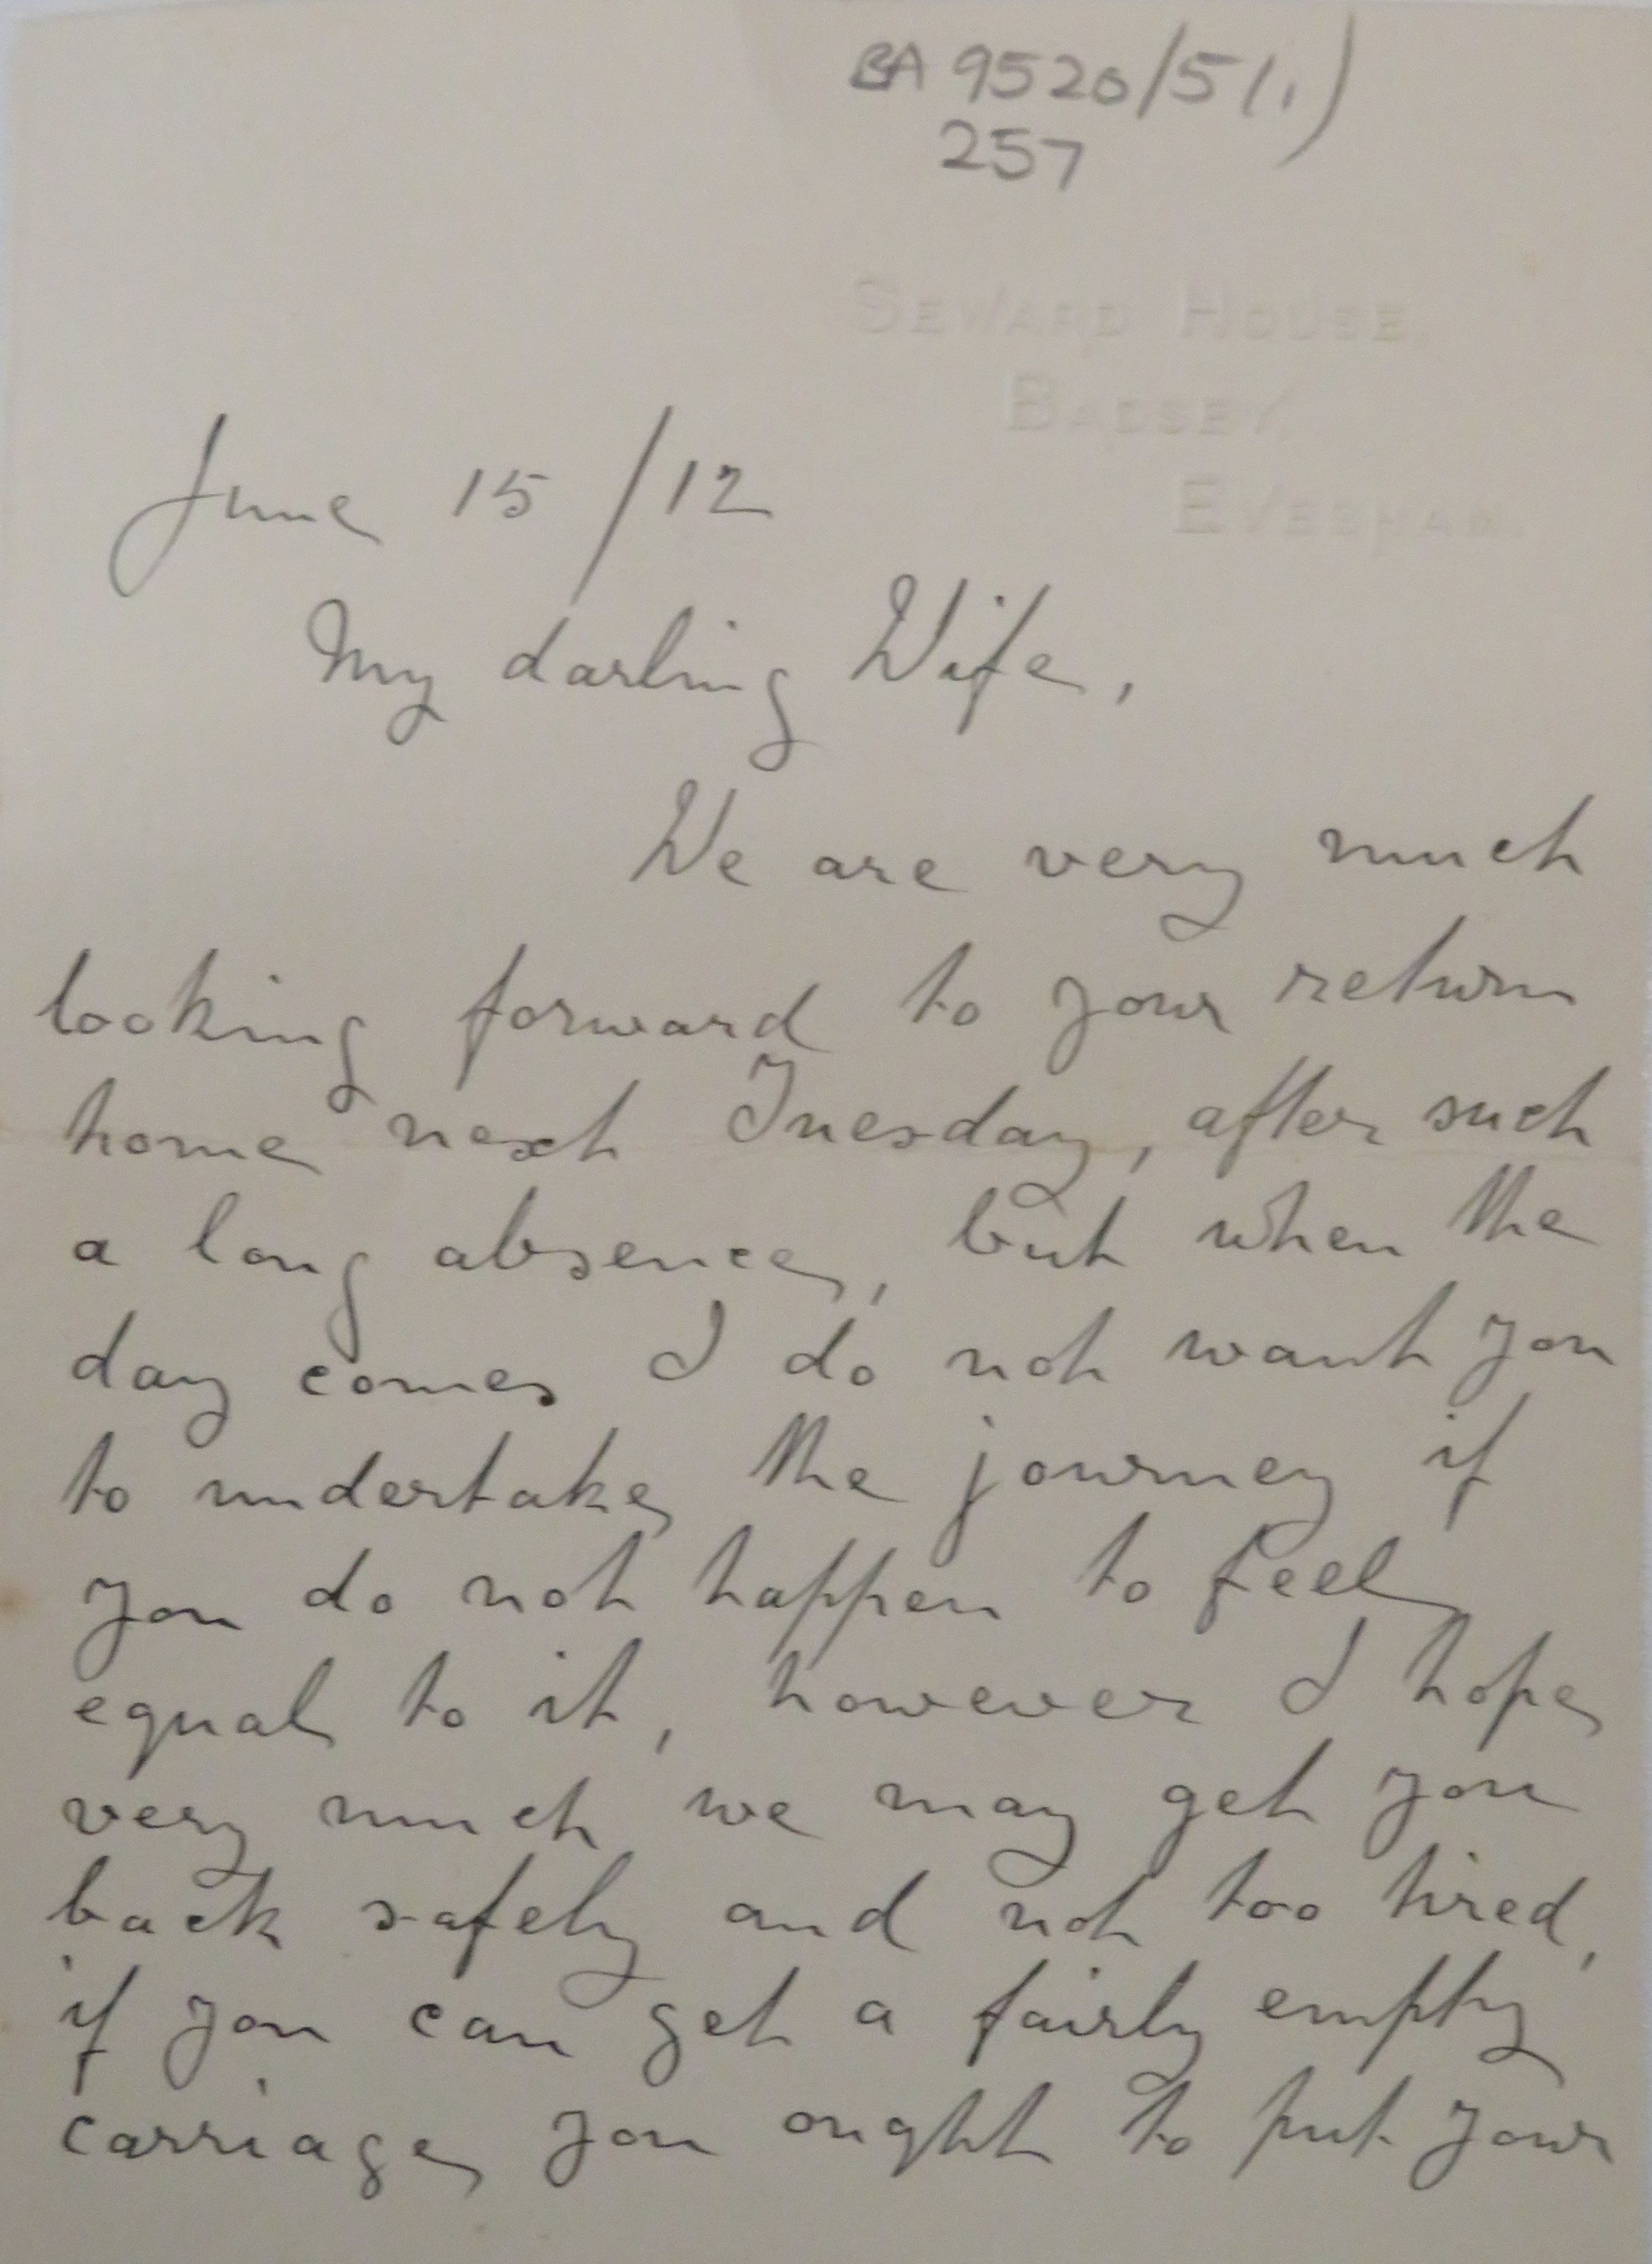 BA 9520/5(1)
257
SEWARD HOUSE
BADSEY,
EVESHAM.
June 15/12
My darling Wife,
We are very much
looking forward to your return
home next Tuesday, after such
a long absence, but when the
day comes I do not want you
to undertake the journey if
you do not happen to feel
equal to it, however I hope
very much we may get you
back safely and not too tired,
if you can get a fairly empty
carriage you ought to put your